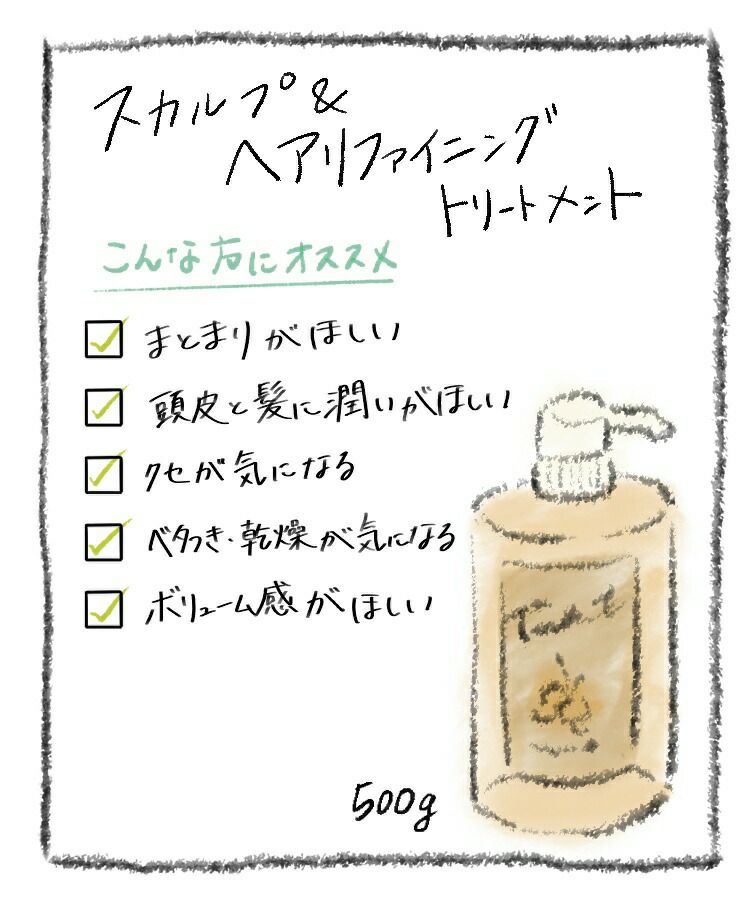 スカルプ&
ヘアリファイニング
トリートメント
こんな方にオススメ
まとまりがほしい
頭皮と髪に潤いがほしい
クセが気になる
ベタつき・乾燥が気になる
ボリューム感がほしい
500g